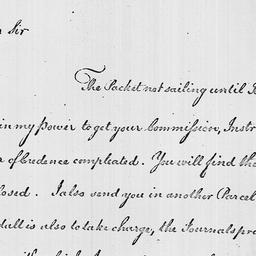 Sir
The Packet not sailing until
in my power to get your Commission, Instr
of Credence compleated. You will find the
losed. I also send you in another Parcel
dall is also to take charge, the Journals pro